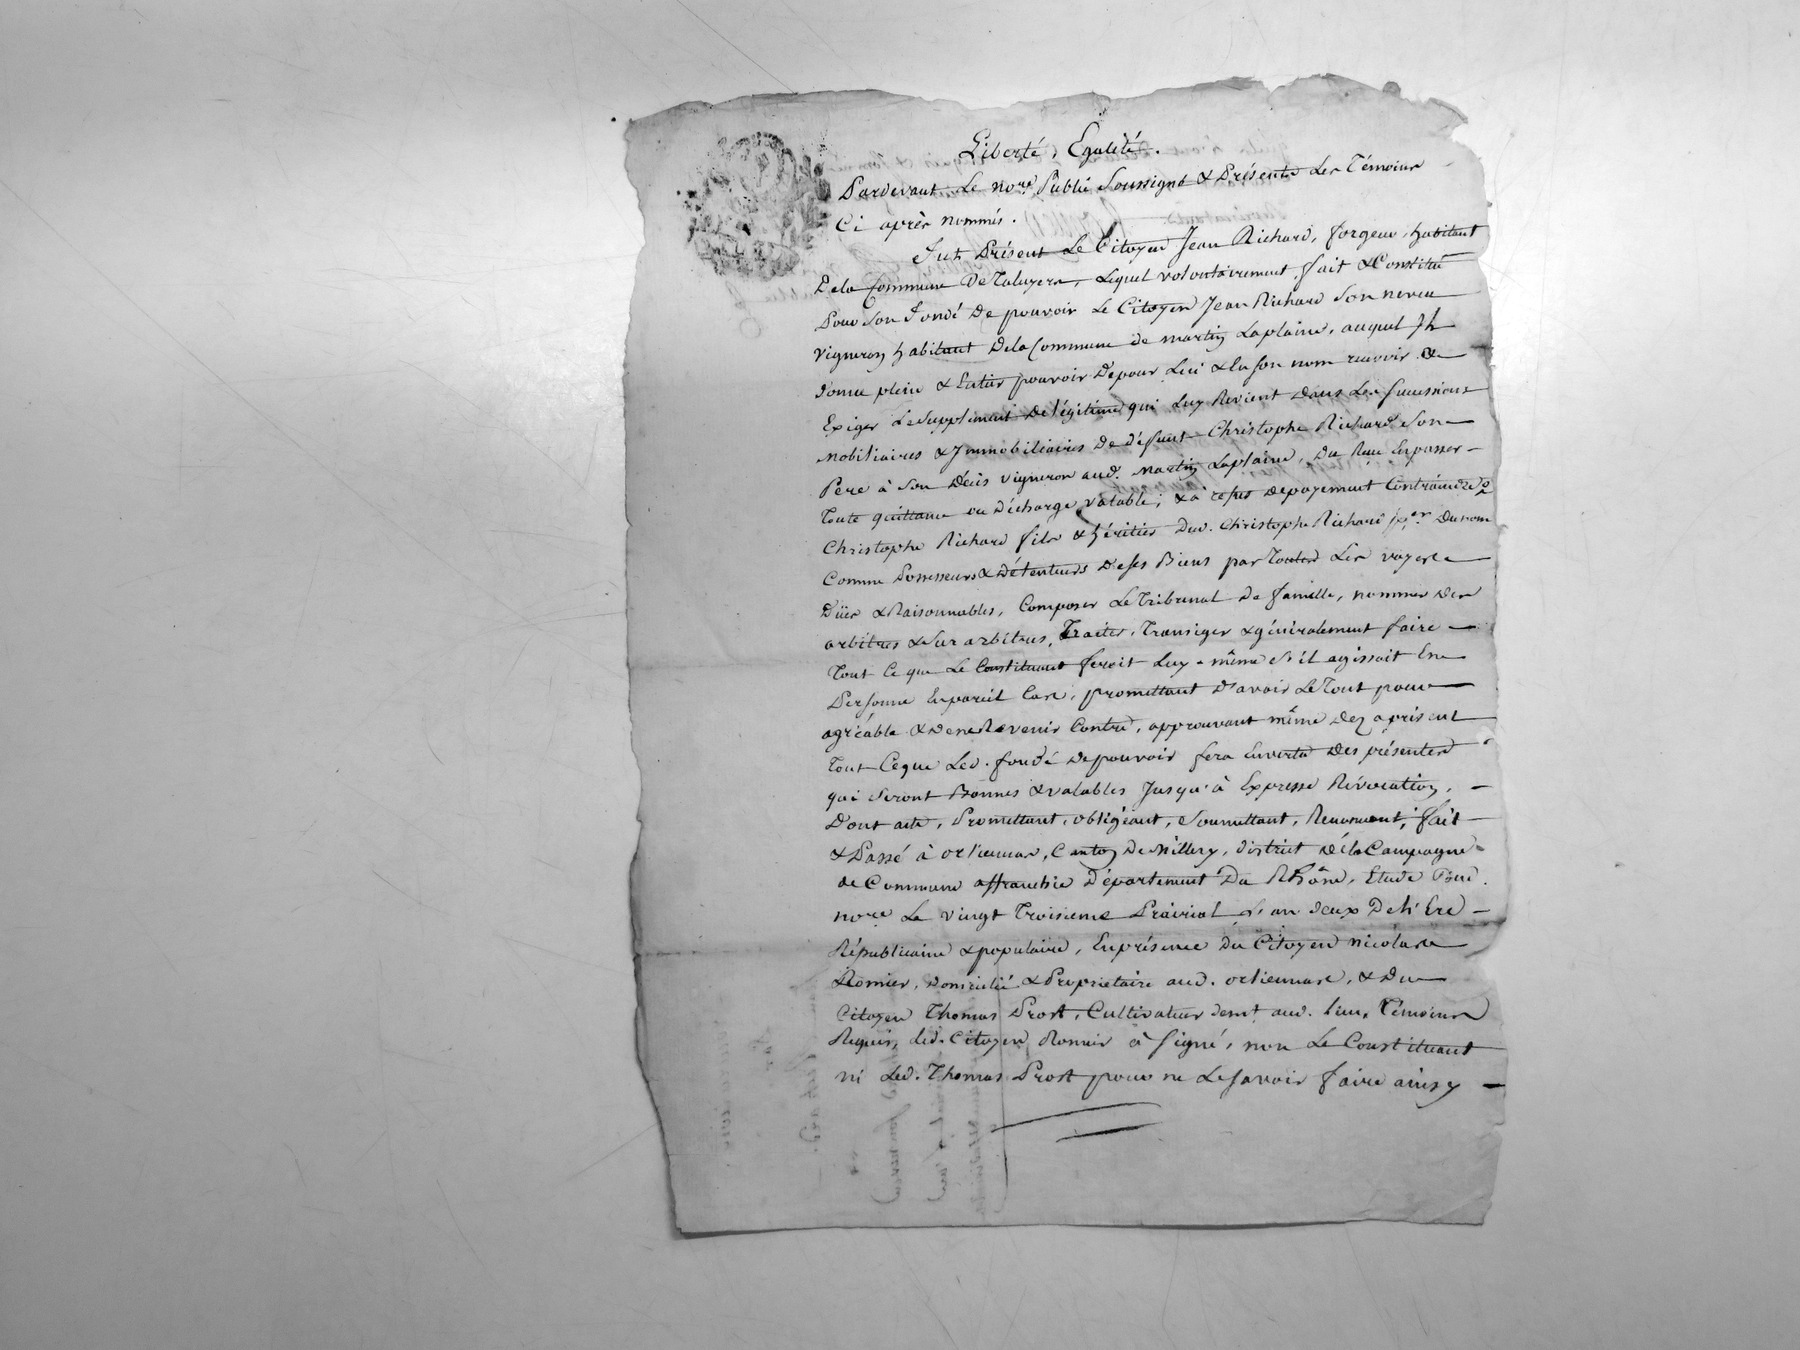 Liberté, Egalité.
Pardevant Le nore. Public Soussigné & Présents Les Témoins
Ci après nommés.
Fut Présent Le Citoyen Jean Richard, forgeur, habitant
Dela Commune De Taluyers, Lequel volontairement fait & Constitué
Pour Son Fondé De pouvoir Le Citoyen Jean Richard Son neveu
Vigneron habitant Dela Commune de martin Laplaine, auquel Il
Donne plein & Entier pouvoir De pour Lui & En Son nom recevoir &
Exiger Le Supplement De légitime qui Luy Revient Dans Les Successions
Mobiliaires & Immobiliaires De Défunt Christophe Richard Son
Pere à Son Décès vigneron aud. Martin Laplaine, Du Reçu En passer
Toute quittance ou Décharge valable; & à refus De payement Contraindre
Christophe Richard fils & héritier Dud. Christophe Richard Du nom
Comme Possesseurs & Détenteurs De ses Biens par Toutes Les voyes
Dües & Raisonnables, Composer Le Tribunal De famille, nommer Des
arbitres & Sur arbitres, Traiter, Transiger & généralement faire
Tout Ce que Le Constituant feroit Luy-même S'il agissoit En
Personne En pareil Cas, promettant D'avoir Le Tout pour
agréable & De ne Revenir Contre, approuvant même Dez aprésent
Tout Ceque Led. fondé De pouvoir fera En vertu Des présentes
qui Seront Bonnes & valables Jusqu'à Expresse Révocation,
Dont acte, Promettant, obligeant, Soumettant, Renonçant, fait
& Passé à orlienuas, Canton De Millery, District Dela Campagne
de Commune affranchie Département Du Rhône, Etude
nore Le vingt Troisieme Prairial L'an Deux De L'Ere
Républicaine & populaire, En présence Du Citoyen nicolas
Romier, Domicilié & Proprietaire aud. orlienuas, & Du
Citoyen Thomas Prost, Cultivateur demt. aud. lieu, Témoins
Requis, Led. Citoyen Romier à Signé, non Le Constituant
ni Led. Thomas Prost pour ne Le Savoir faire ainsy